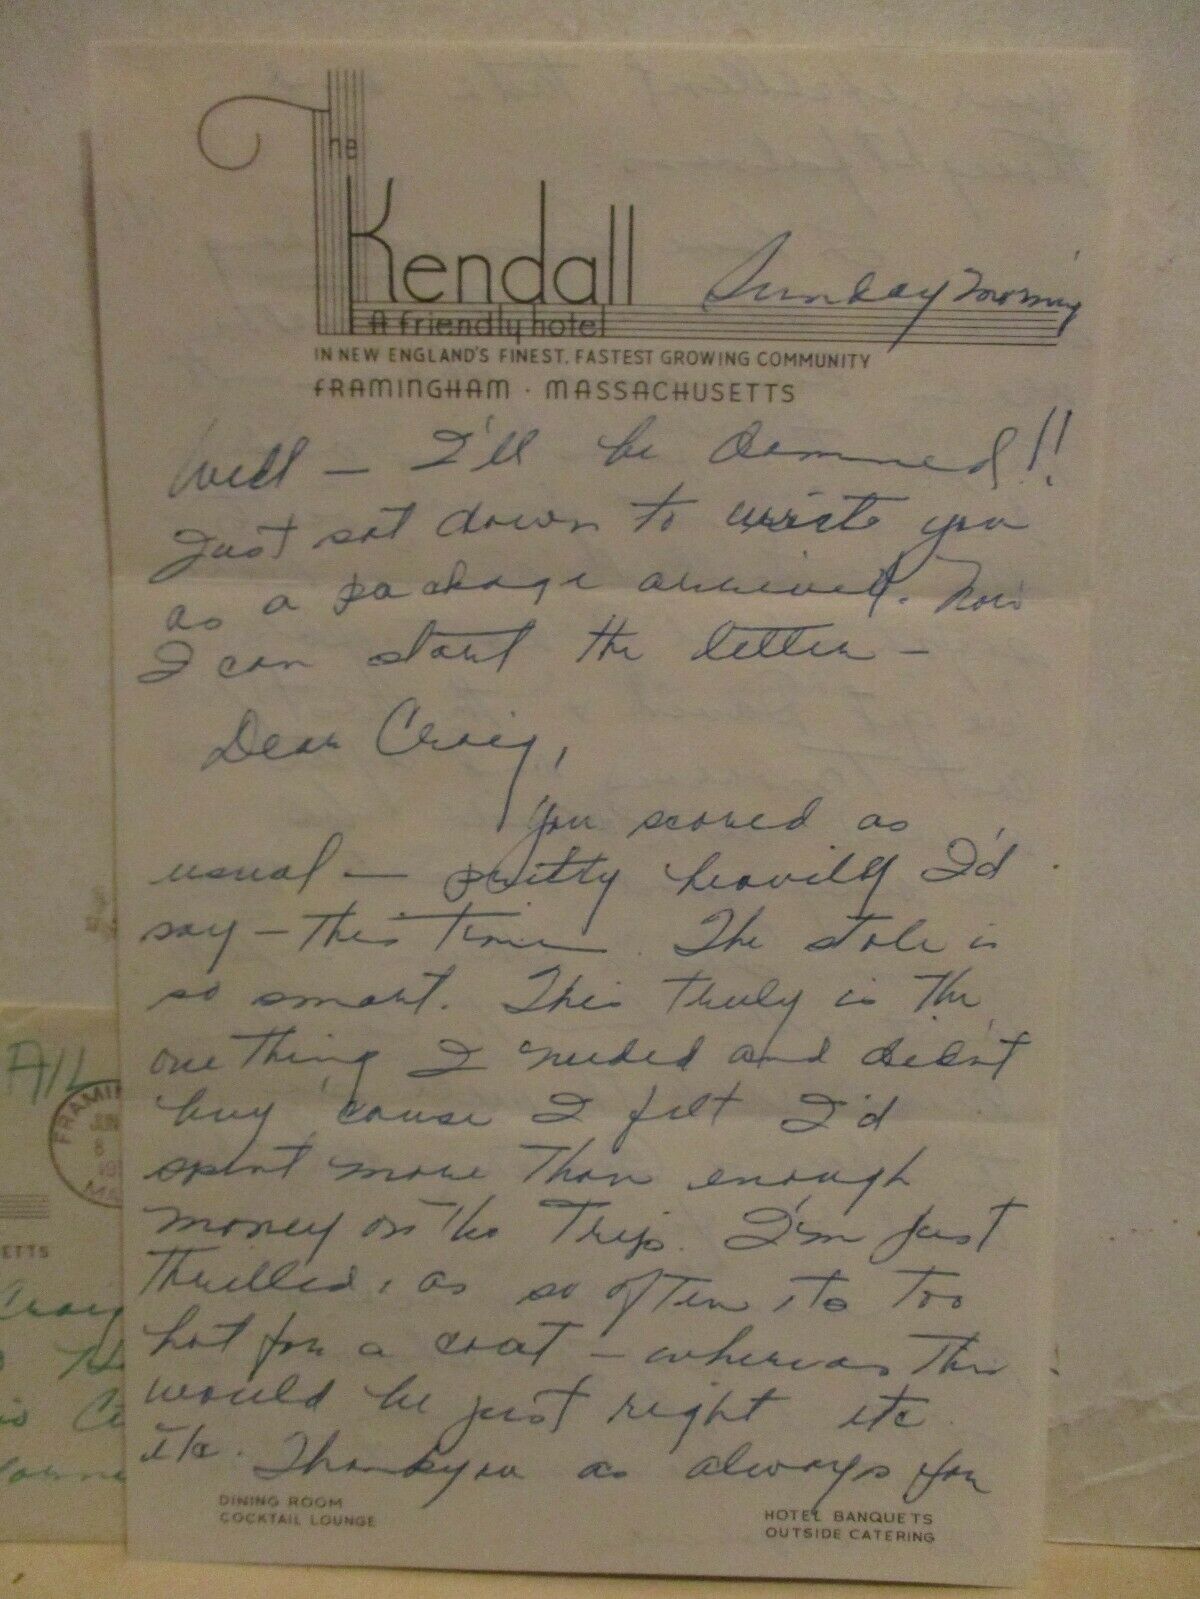 The
Kendall
A friendly hotel
Sunday Morning
IN NEW ENGLAND'S FINEST, FASTEST GROWING COMMUNITY
FRAMINGHAM · MASSACHUSETTS
Well — I'll be damned!!
Just sat down to write you
as a package arrived. Now
I can start the letter —
Dear Craig,
You scored as
usual — pretty heavily I'd
say — this time. The stole is
so smart. This truly is the
one thing I needed and didn't
buy 'cause I felt I'd
spent more than enough
money on the Trip. I'm just
thrilled, as so often its too
hot for a coat — whereas this
would be just right etc
etc. Thankyou as always for
DINING ROOM
COCKTAIL LOUNGE
HOTEL BANQUETS
OUTSIDE CATERING
AIL
FRAMI
MA
ETTS
Craig